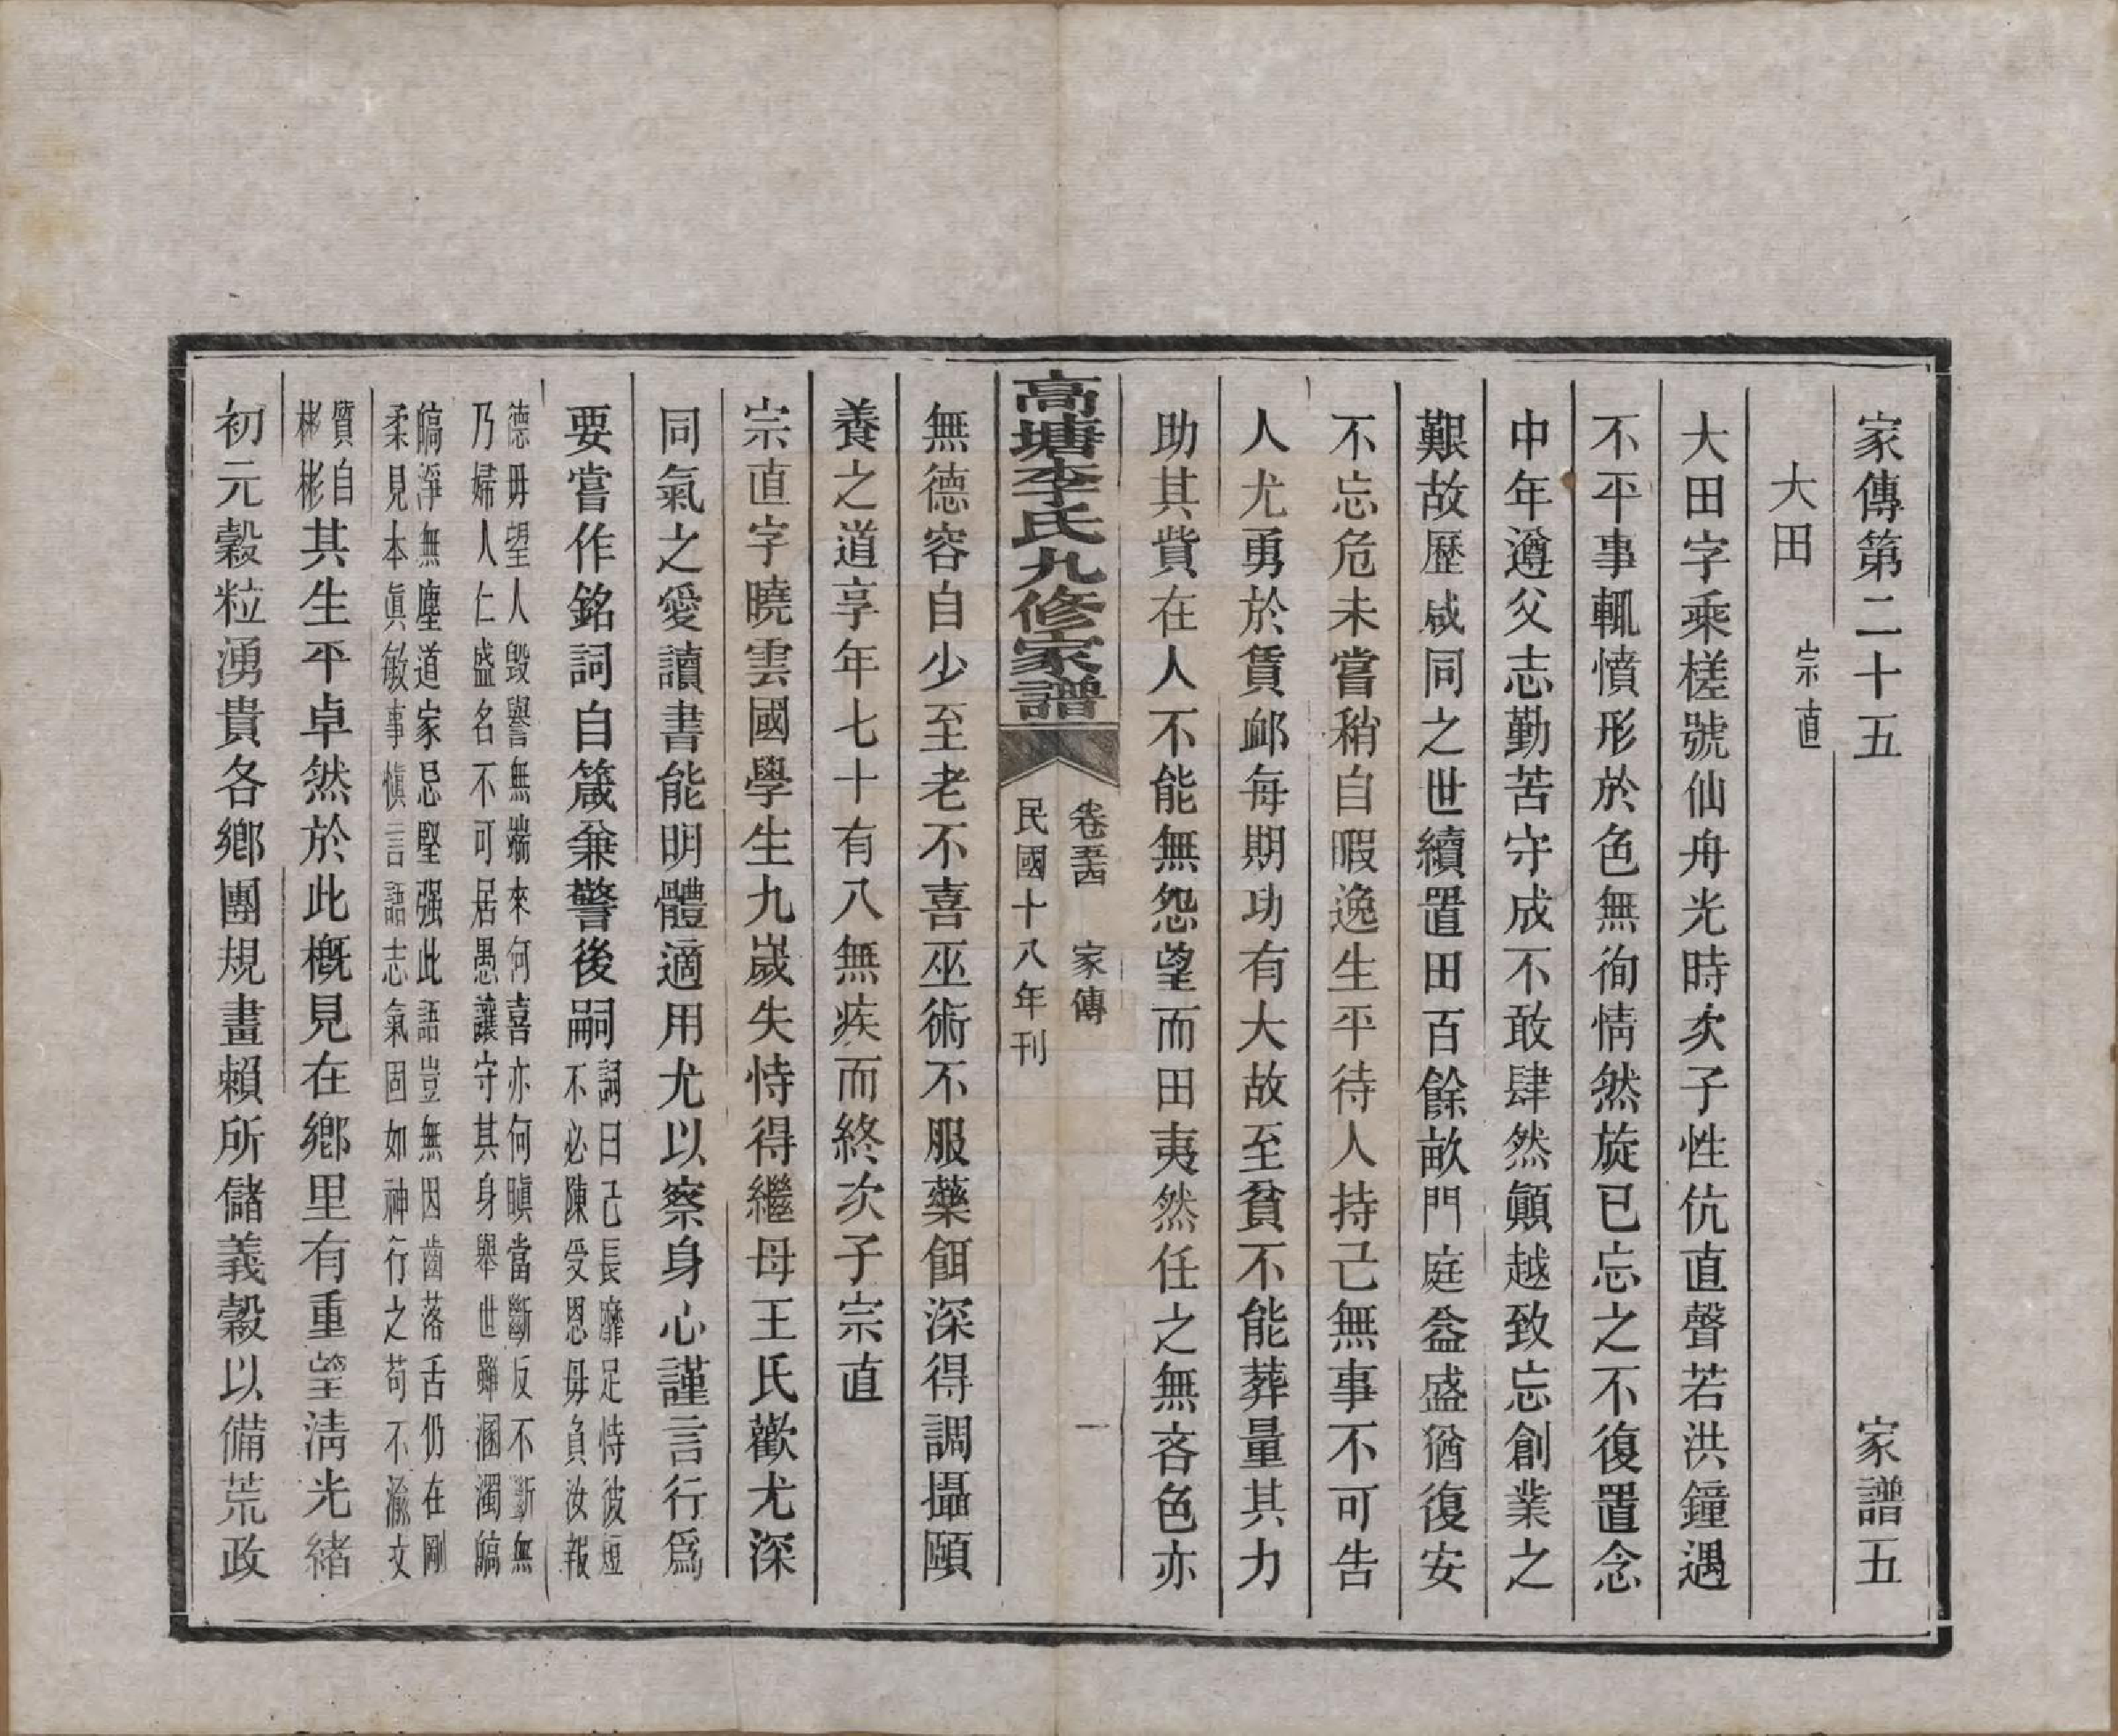 家傳第二十五　家譜五
大田　宗直
大田字乘槎號仙舟光時次子性伉直聲若洪鐘遇
不平事輒憤形於色無徇情然旋已忘之不復置念
中年遵父志勤苦守成不敢肆然顚越致忘創業之
艱故歷咸同之世續置田百餘畝門庭益盛猶復安
不忘危未嘗稍自暇逸生平待人持己無事不可告
人尤勇於賃邮每期功有大故至貧不能葬量其力
助其貲在人不能無怨望而田夷然任之無吝色亦
高塘李氏九修家譜
卷五十四　家傳　一
民國十八年刊
無德容自少至老不喜巫術不服藥餌深得調攝頤
養之道享年七十有八無疾而終次子宗直
宗直字曉雲國學生九嵗失恃得繼母王氏歡尤深
同氣之愛讀書能明體適用尤以察身心謹言行爲
要嘗作銘詞自箴兼警後嗣詞曰己長靡足恃彼短
不必陳受恩毋負汝報
德毋望人毀譽無端來何喜亦何瞋當斷反不斷無
乃婦人仁盛名不可居愚讓守其身舉世雖溷濁縞
縞淨無塵道家忌堅强此語豈無因齒落舌仍在剛
柔見本眞敏事愼言語志氣固如神行之苟不渝文
質自
彬彬其生平卓然於此槪見在鄕里有重望淸光緖
初元穀粒湧貴各鄕團規畫賴所儲義穀以備荒政